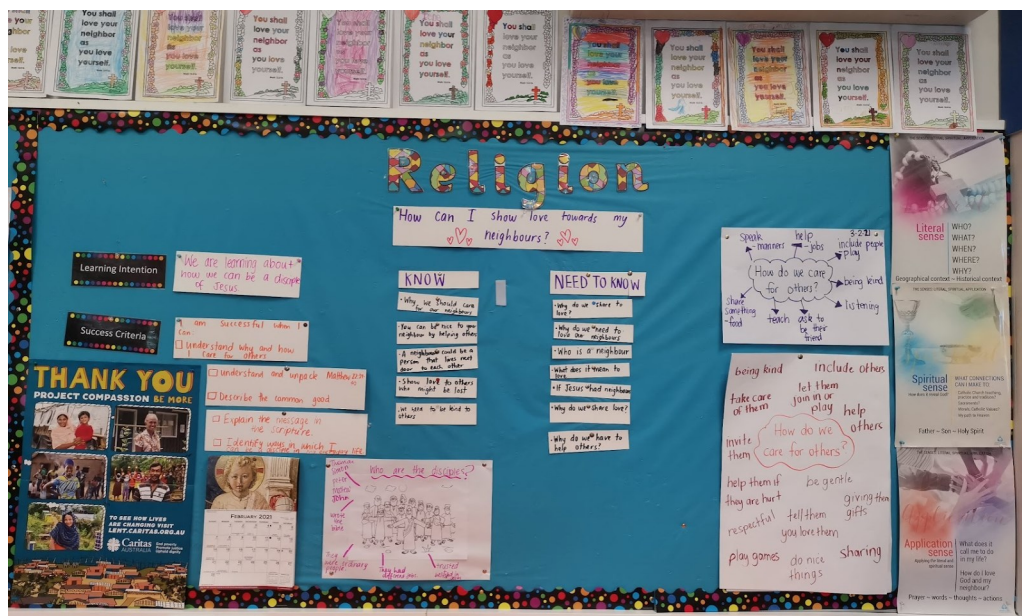 You shall
love your
neighbor
as
you love
yourself.
You shall
love your
neighbor
as
you love
yourself.
You shall
love your
neighbor
as
you love
yourself.
You shall
love your
neighbor
as
you love
yourself.
You shall
love your
neighbor
as
you love
yourself.
You shall
love your
neighbor
as
you love
yourself.
You shall
love your
neighbor
as
you love
yourself.
You shall
love your
neighbor
as
you love
yourself.
You shall
love your
neighbor
as
you love
yourself.
You shall
love your
neighbor
as
you love
yourself.
Religion
How can I show love towards my
neighbours?
Learning Intention
We are learning about
how we can be a disciple
of Jesus
Success Criteria
I am successful when I
can:
Understand why and how
I care for others
understand and unpack Matthew
Describe the common good
Explain the message in
the scripture.
Identify ways in which I
KNOW
-Why we should care
for our neighbours
-You can be nice to your
neighbour by helping others
-A neighbour could be a
person that lives next
door to each other
-Show love to others
who might be lost
-we need to be kind to
others
NEED TO KNOW
-Why do we share to
love?
-Why do we need to
love our neighbours
-Who is a neighbour
-What does it mean to
love
-If Jesus had neighbours
-Why do we share love?
-Why do we have to
help others?
3-2-21
speak
-manners
help
-jobs
include people
play
How do we care
for others?
being kind
listening
share
something
-food
teach
ask to
be their
friend
being kind
include others
take care
of them
let them
join in or
play
help
others
invite
them
How do we
care for others?
help them if
they are hurt
be gentle
giving them
gifts
respectful
tell them
you love them
play games
do nice
things
sharing
THANK YOU
PROJECT COMPASSION BE MORE
TO SEE HOW LIVES
ARE CHANGING VISIT
LENT.CARITAS.ORG.AU
Caritas
AUSTRALIA
FEBRUARY 2021
Who are the disciples?
Peter
John
They had
Literal
sense
WHO?
WHAT?
WHEN?
WHERE?
WHY?
Geographical context – Historical context
Spiritual
sense
WHAT CONNECTIONS
CAN I MAKE TO:
Father – Son – Holy Spirit
Application
sense
What does it
call me to do
in my life?
How do I love
God and my
neighbour?
Prayer – words – thoughts – actions